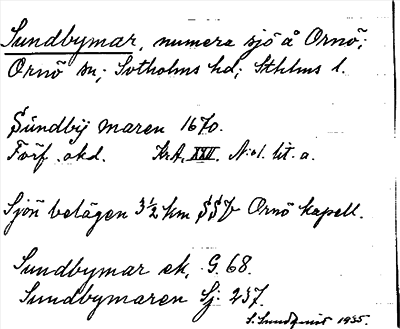 Sundbymar, numera sjö å Ornö;
Ornö sn; Sotholms hd; Sthlms l.
Sundbij maren 1670.
Förf. okd. KrA. XXII. N:o 1. lit. a.
Sjön belägen 3½ km SSV Ornö kapell.
Sundbymar ek. G. 68.
Sundbymaren Sj. 237.
S. Sundqvist 1935.